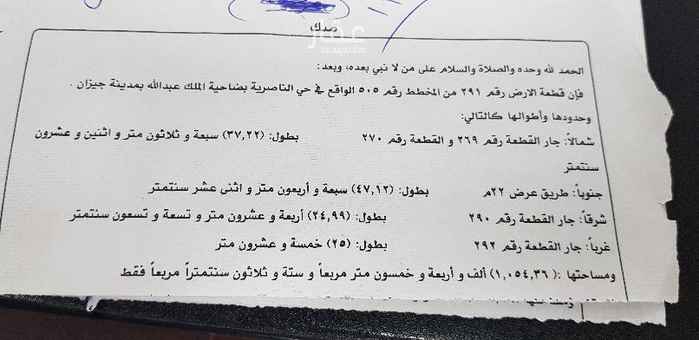 صك
الحمد لله وحده والصلاة والسلام على من لا نبي بعده، وبعد:
فإن قطعة الارض رقم ٢٩١ من المخطط رقم ٥٠٥ الواقع في حي الناصرية بضاحية الملك عبدالله بمدينة جيزان .
وحدودها وأطوالها كالتالي:
شمالاً: جار القطعة رقم ٢٦٩ و القطعة رقم ٢٧٠ بطول: (٣٧,٢٢) سبعة و ثلاثون متر و اثنين و عشرون
سنتمتر
جنوباً: طريق عرض ٢٢م بطول: (٤٧,١٢) سبعة و أربعون متر و اثنى عشر سنتمتر
شرقاً: جار القطعة رقم ٢٩٠ بطول: (٢٤,٩٩) أربعة و عشرون متر و تسعة و تسعون سنتمتر
غرباً: جار القطعة رقم ٢٩٢ بطول: (٢٥) خمسة و عشرون متر
ومساحتها :( ١,٠٥٤,٣٦) ألف و أربعة و خمسون متر مربعاً و ستة و ثلاثون سنتمتراً مربعاً فقط